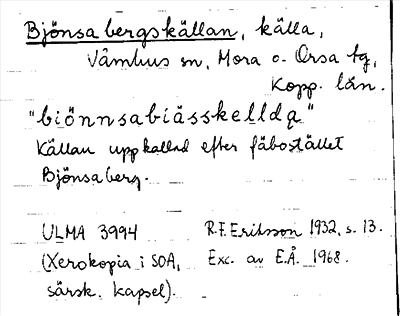 Bjönsabergskällan, källa,
Våmhus sn, Mora o. Orsa tg,
Kopp. län.
"biönnsabiässkellda"
Källan uppkallad efter fäbostället
Bjönsaberg.
ULMA 3994 R.F. Eriksson 1932, s. 13.
(Xerokopia i SOA, Exc. av E.Å. 1968.
särsk. kapsel).